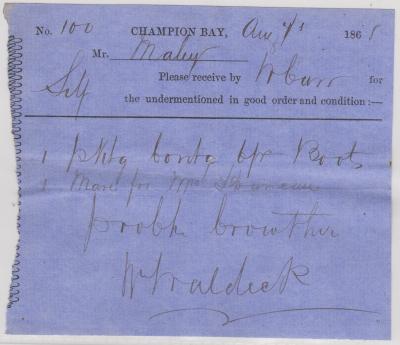 No. 100 CHAMPION BAY, Aug 7/s 1868
Mr. Maley
Please receive by W Carr for
Self the undermentioned in good order and condition :—
1 pktg contg Boots
1 Mare for Mrs
probk Crowther
W Waldeck